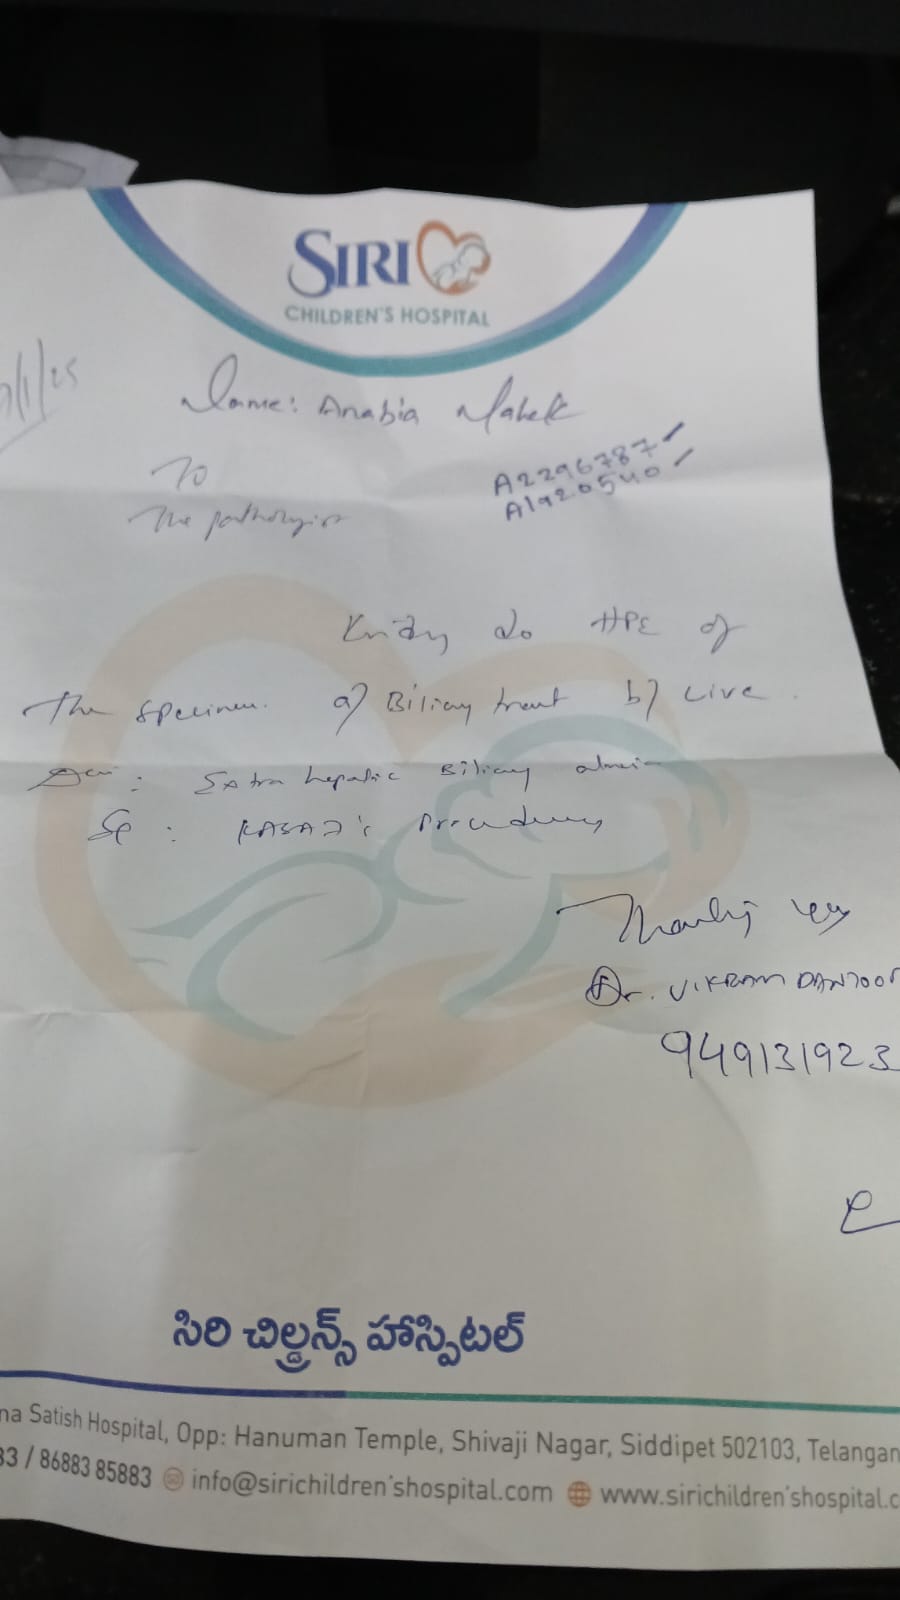 SIRI
CHILDREN'S HOSPITAL
/1/25
Name: Anabia Mahek
To
The pathologist
A2296787
A1920540
Kindly do HPE of
The specimen. a) Biliary tract b) Live
: Extra hepatic Biliary
: KASAI's Procedure
Thanking you
Dr. VIKRAM
949131923
సిరి చిల్డ్రన్స్ హాస్పిటల్
na Satish Hospital, Opp: Hanuman Temple, Shivaji Nagar, Siddipet 502103, Telangan
83 / 86883 85883 info@sirichildren'shospital.com www.sirichildren'shospital.c